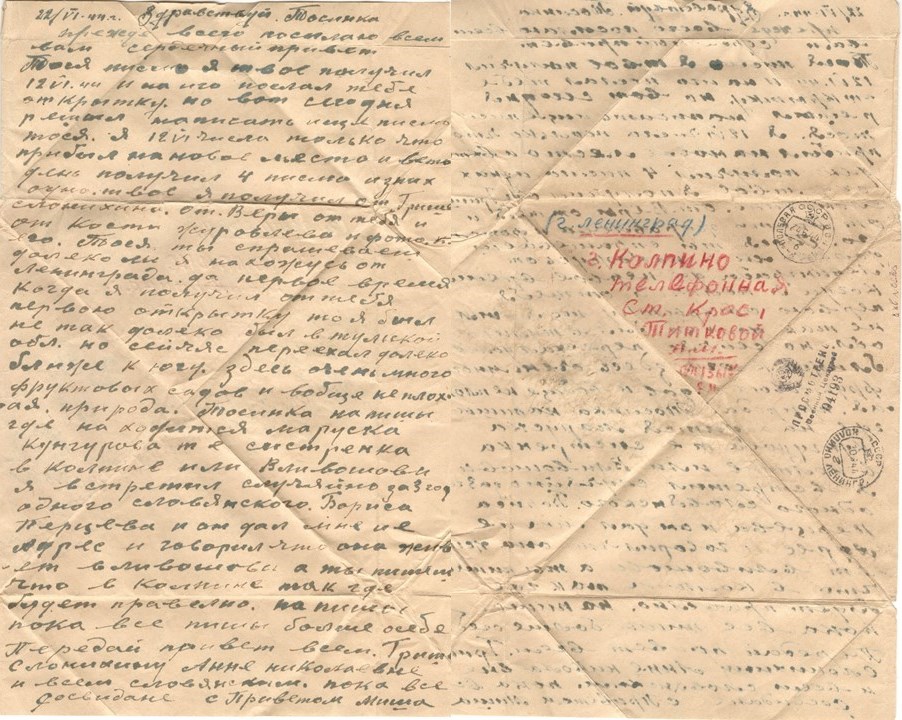 22/VI-44г. Здравствуй. Тосинка
прежде всего посылаю всем
вам сердечный привет
Тося письмо я твое получил
12 VI. и на иго послал тебе
открытку. но вот сегодня
решил написать ище письмо
тося. я 12 VI числа только что
прибыл на новое место и в ето
день получил 4 письма изних
одно. твое я получил от Гриши
слонихина. от. Веры от тебя и
от Кости Журовлева и фото.
его. Тося. ты спрашеваеш
далеко ли я нахожусь от
Ленинграда. да первое время
когда я получил от тебя
первою открытку то я был
не так далеко был в тульской
обл. но сейчяс переехал далеко
ближе к югу. здесь очень много
фруктовых садов и вобще неплох
ая. природа. Тосинка напишы
где находится маруска
Кунгурова те систренка
в колпине или Вливошови
я встретил случяйно за 3 год
одного словянского. Бориса
Перцева и он дал мне ие
Адрес и говорил что она жив
ет вливошове а ты пишеш
что в Колпине так где
будет правелно. напишы
пока все пишы болше осебе
Передай привет всем. Грише
слонихину Анне николаевне
и всем словянским. пока все
досвидане с Приветом миша
(г. Ленинград.)
г. Колпино
телефонная
Ст. Крас,
Титковой